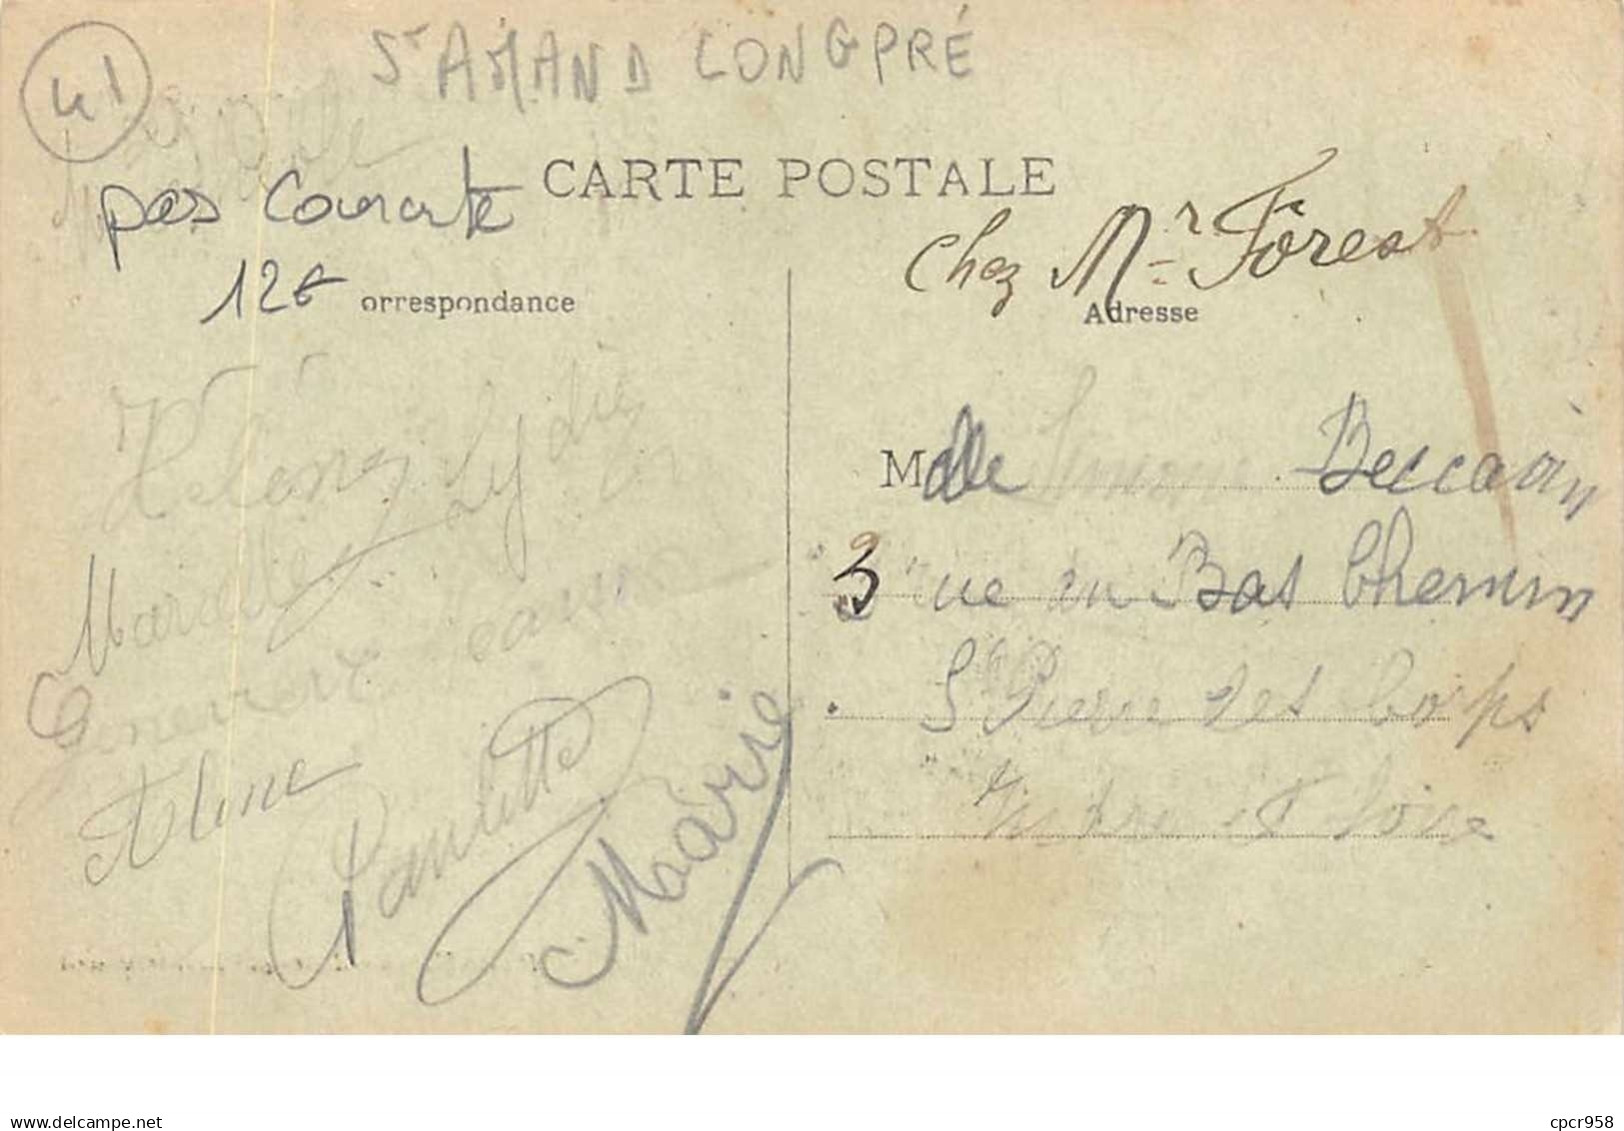 41
St AMAND LONGPRÉ
CARTE POSTALE
pas Courante
12€
orrespondance
Chez Mr Forest
Adresse
Hélène Lydie
Marcelle
Geneviève
Aline
Paulette
Marie
Mdelle Simone Beccavin
3 rue du Bas Chemin
St Pierre des Corps
Indre et Loire
delcampe.net
cpcr958